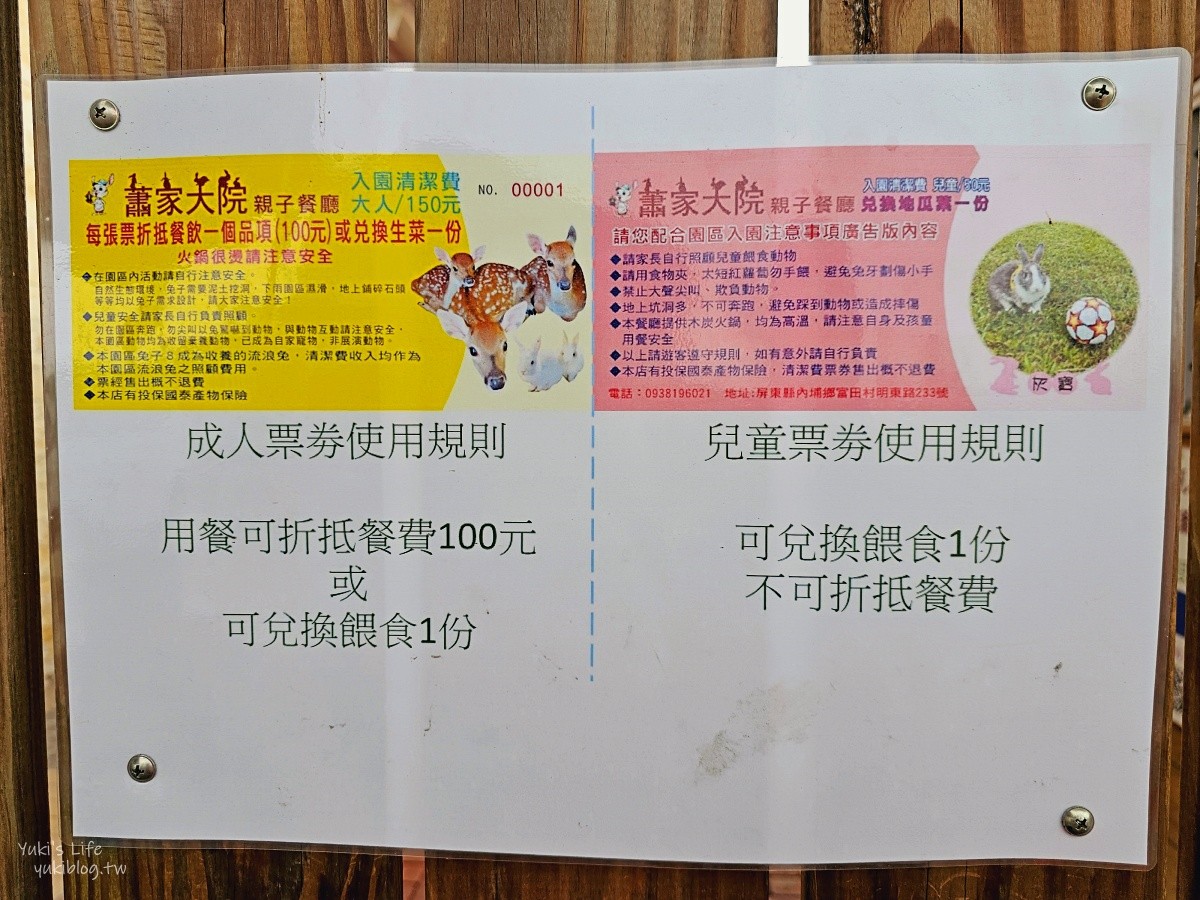 蕭家大院 親子餐廳
入園清潔費
大人/150元
NO. 00001
每張票折抵餐飲一個品項(100元)或兌換生菜一份
火鍋很燙請注意安全
◆在園區內活動請自行注意安全。
自然生態環境，兔子需要泥土挖洞，下雨園區濕滑，地上鋪碎石頭
等等均以兔子需求設計，請大家注意安全！
◆兒童安全請家長自行負責照顧。
勿在園區奔跑，勿尖叫以免驚嚇到動物，與動物互動請注意安全，
本園區動物均為收留棄養動物，已成為自家寵物，非展演動物。
◆本園區兔子8成為收養的流浪兔，清潔費收入均作為
本園區流浪兔之照顧費用。
◆票經售出概不退費
◆本店有投保國泰產物保險
成人票券使用規則
用餐可折抵餐費100元
或
可兌換餵食1份
蕭家大院 親子餐廳
入園清潔費 兒童/50元
兌換地瓜菜一份
請您配合園區入園注意事項廣告版內容
◆請家長自行照顧兒童餵食動物
◆請用食物夾，太短紅蘿蔔勿手餵，避免兔牙劃傷小手
◆禁止大聲尖叫、欺負動物。
◆地上坑洞多，不可奔跑，避免踩到動物或造成摔傷
◆本餐廳提供木炭火鍋，均為高溫，請注意自身及孩童
用餐安全
◆以上請遊客遵守規則，如有意外請自行負責
◆本店有投保國泰產物保險，清潔費票券售出概不退費
電話：0938196021 地址:屏東縣內埔鄉富田村明東路233號
灰寶
兒童票券使用規則
可兌換餵食1份
不可折抵餐費
Yuki's Life
yukiblog.tw